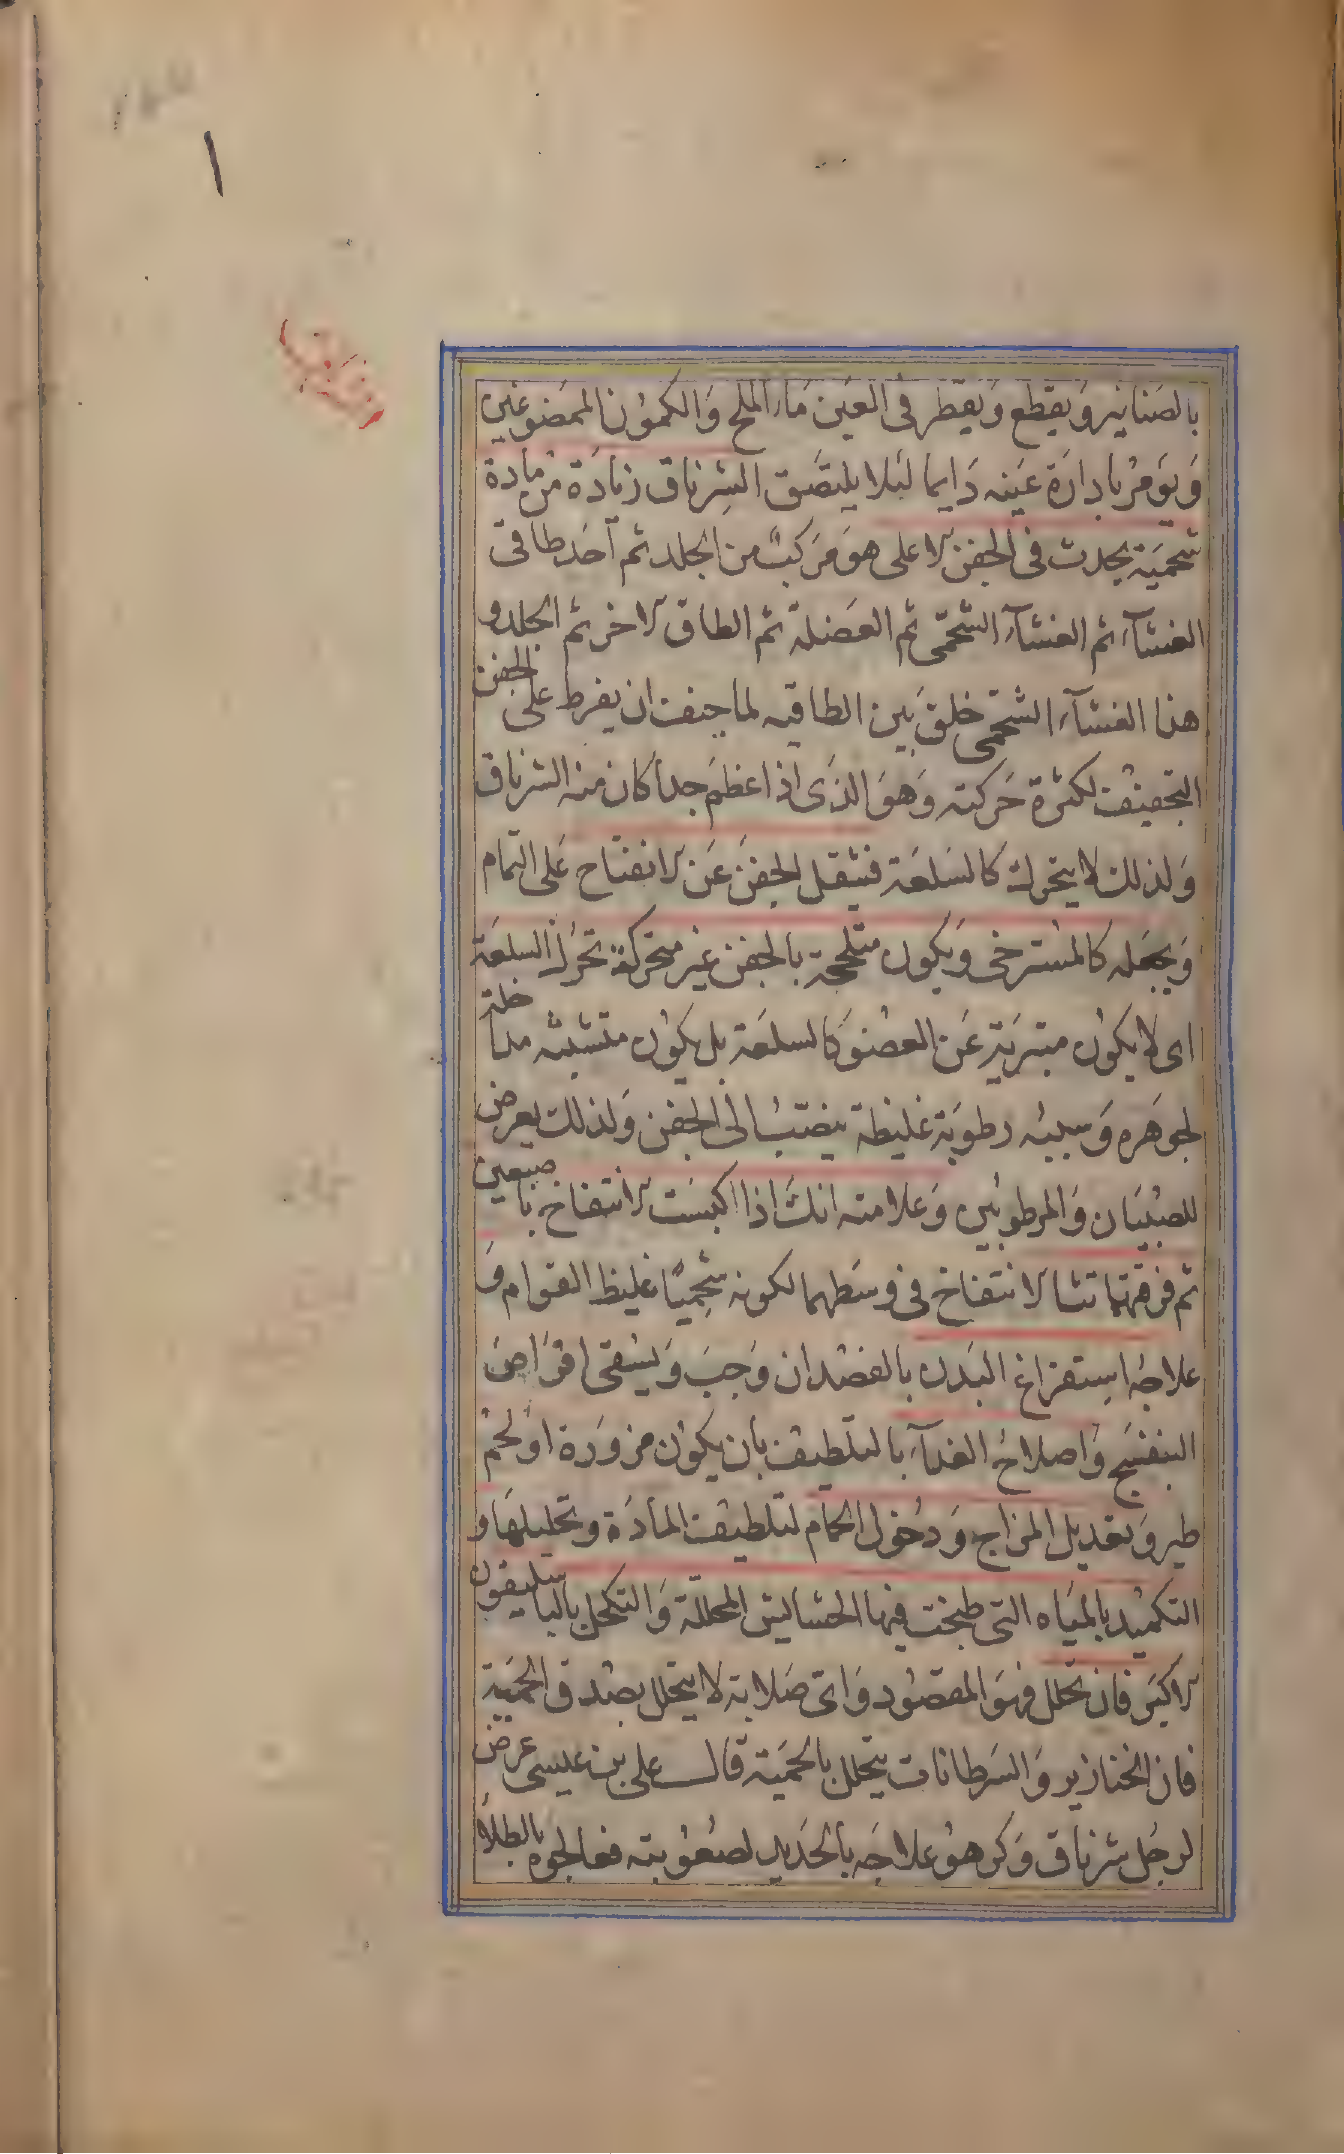 بالصنانير ويقطع ويقطر فى العين ماء الملح والكمون الممضوغين
ويومر بادارة عينه دايما لئلا يلتصق الشرناق زيادة من مادة
شحمية يحدث فى الجفن الاعلى هو مركب من الجلد ثم احد طاقى
الغشآء ثم الغشآء الشحمى ثم العضلة ثم الطاق الاخر ثم الجلد و
هذا الغشآء الشحمى خلق بين الطاقيه لما خيف ان يفرط على الجفن
التجفيف لكثرة حركته وهو الذى اذا عظم جدا كان منه الشرناق
ولذلك لا يتحرك كالسلعة فيثقل الجفن عن الانفتاح على التمام
ويجعله كالمسترخى ويكون متلحجة بالجفن غير متحركة تحرك السلعة
اى لا يكون متبرية عن العضو كالسلعة بل يكون متشبثه مداخلة
لجوهره وسببه رطوبة غليظة ينصب الى الجفن ولذلك يعرض
للصبيان والمرطوبين وعلامته انك اذا كبست الانتفاخ باصبعين
ثم فرقتهما نتا الانتفاخ فى وسطهما لكونه شحميا غليظ القوام و
علاجه استفراغ البدن بالفصد ان وجب ويسقى اقراص
البنفسج واصلاح الغذآء بالتلطيف بان يكون مزورة او لحم
طير وتعديل المزاج ودخول الحمام لتلطيف المادة وتحليلها و
التكميد بالمياه التى طبخت فيها الحشايش المحللة والتكحل بالباسليقون
الاكبر فان تحلل فهو المقصود واى صلابة لا يتحلل بصدق الحمية
فان الخنازير والسرطانات يتحلل بالحمية قال على بن عيسى عرض
لرجل شرناق وكرهو علاجه بالحديد لصعوبته فعالجوه بالطلاء